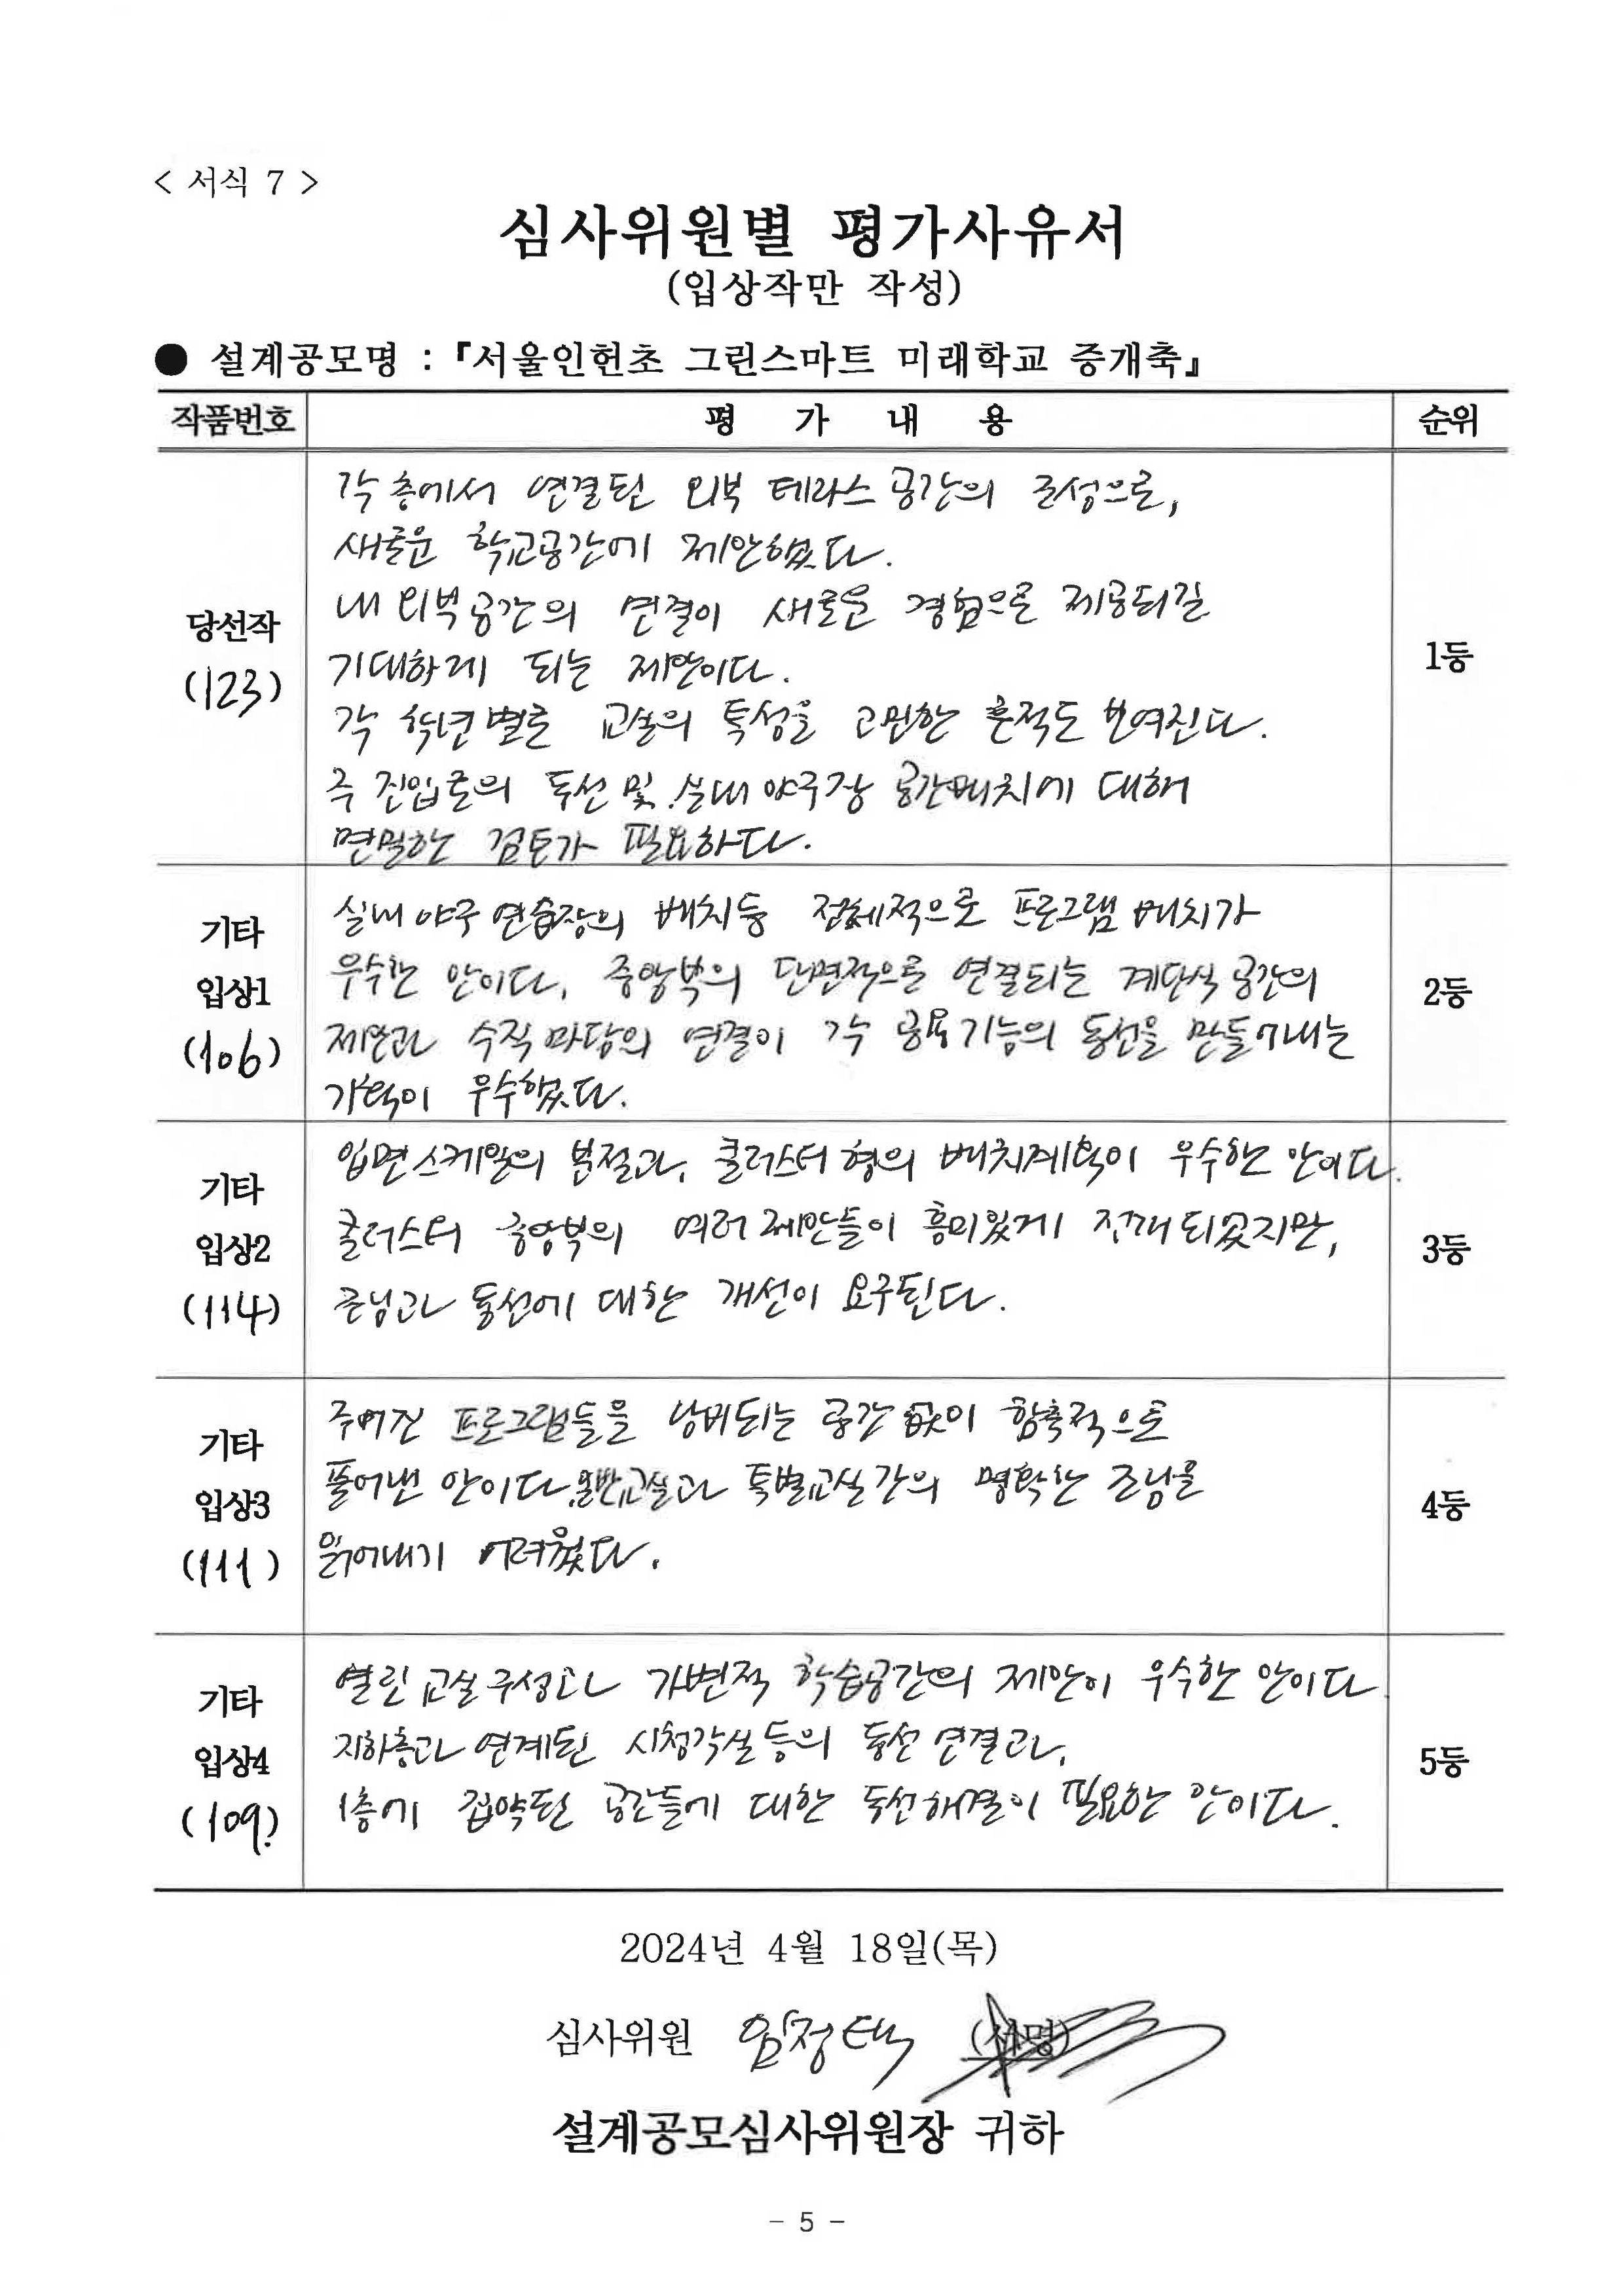 < 서식 7 >
심사위원별 평가사유서
(입상작만 작성)
● 설계공모명 : 『서울인헌초 그린스마트 미래학교 증개축』
작품번호 평 가 내 용 순위
당선작
(123)
각 층에서 연결된 외부 테라스 공간의 조성으로,
새로운 학교공간에 제안했다.
내 외부공간의 연결이 새로운 경험으로 제공되길
기대하게 되는 제안이다.
각 학년별로 교실의 특성을 고민한 흔적도 보여진다.
주 진입로의 동선 및 실내 야구장 공간배치에 대해
면밀한 검토가 필요하다.
1등
기타
입상1
(106)
실내 야구 연습장의 배치등 전체적으로 프로그램 배치가
우수한 안이다. 중앙부의 단면적으로 연결되는 계단식 공간의
제안과 수직 마당의 연결이 각 공용기능의 동선을 만들어내는
계획이 우수했다.
2등
기타
입상2
(114)
입면 스케일의 분절과, 클러스터형의 배치계획이 우수한 안이다.
클러스터 중앙부의 여러 제안들이 흥미있게 전개되었지만,
조닝과 동선에 대한 개선이 요구된다.
3등
기타
입상3
(111)
주어진 프로그램들을 낭비되는 공간 없이 함축적으로
풀어낸 안이다. 일반교실과 특별교실간의 명확한 조닝을
읽어내기 어려웠다.
4등
기타
입상4
(109)
열린 교실 구성과 가변적 학습공간의 제안이 우수한 안이다.
지하층과 연계된 시청각실 등의 동선 연결과,
1층에 집약된 공간들에 대한 동선해결이 필요한 안이다.
5등
2024년 4월 18일(목)
심사위원 임정택 (서명)
설계공모심사위원장 귀하
- 5 -